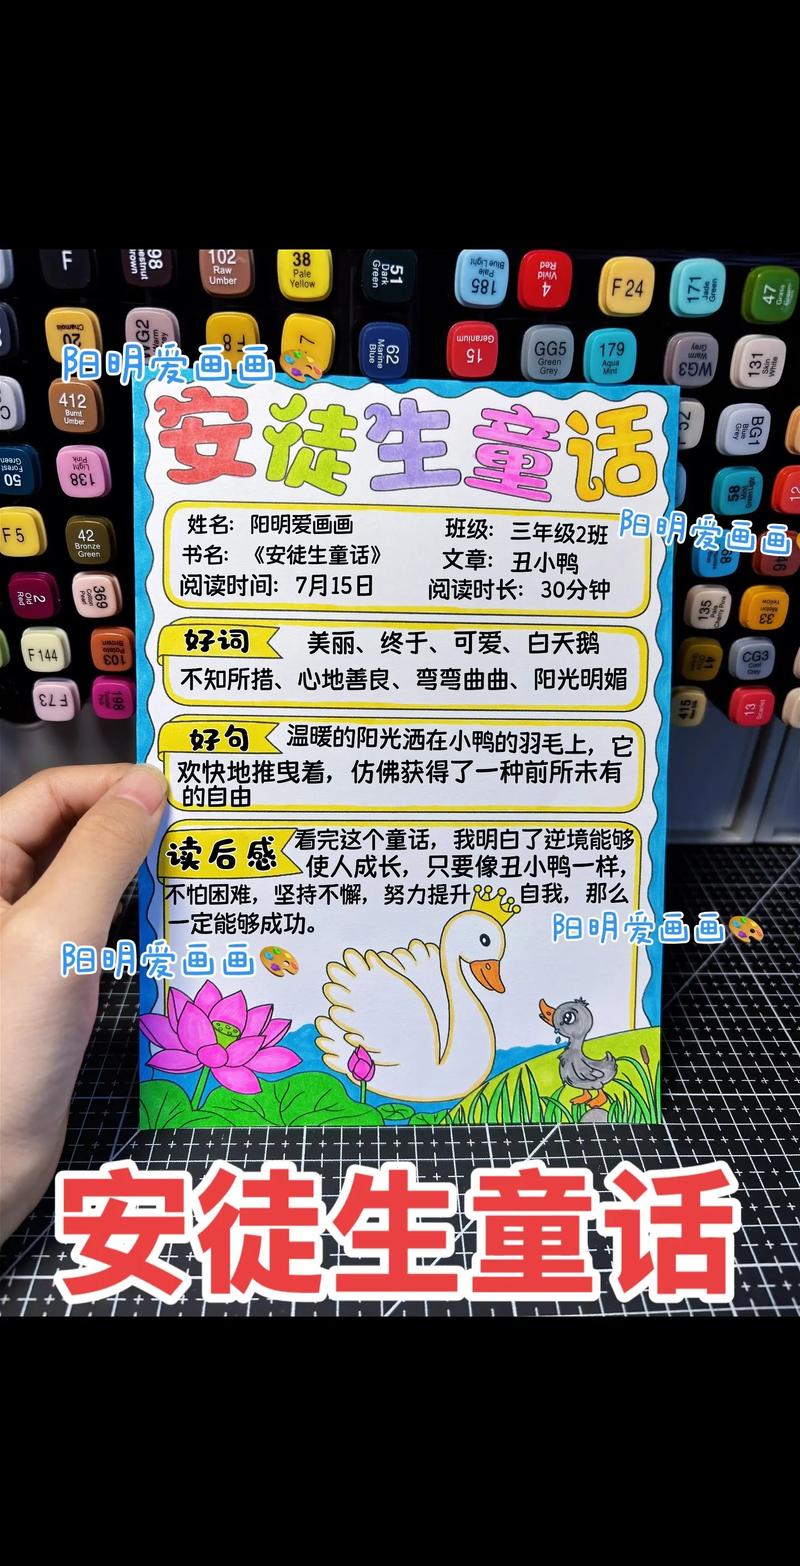 F
98
estnut
rown
102
Raw
Umber
38
Pale
Yellow
51
Dark
Green
185
Pale
Blue Light
4
Vivid
Red
F 24
171
Jade
Green
47
20
Chamois
WG2
8
7
62
Marine
Blue
15
Geranium
GG5
Green
Grey
179
Aqua
Mint
WG3
Warm
Grey
131
Skin
White
阳明爱画画
412
Burnt
Umber
C
50
Forest
Green
138
Light
Pink
安徒生童话
52
BG1
Blue
Grey
58
Mint
Green Light
12
F 5
42
Bronze
Green
姓名: 阳明爱画画
班级: 三年级2班
阳明爱画画
书名: 《安徒生童话》
文章: 丑小鸭
阅读时间: 7月15日
阅读时长: 30分钟
2
Old
Red
369
135
Pale
Pink
33
Melon
Yellow
F 144
103
Potato
Brown
41
CG3
Cool
Grey
F 73
198
415
13
Scarlet
好词 美丽、终于、可爱、白天鹅
不知所措、心地善良、弯弯曲曲、阳光明媚
好句 温暖的阳光洒在小鸭的羽毛上，它
欢快地推曳着，仿佛获得了一种前所未有
的自由
读后感 看完这个童话，我明白了逆境能够
使人成长，只要像丑小鸭一样，
不怕困难，坚持不懈，努力提升自我，那么
一定能够成功。
阳明爱画画
阳明爱画画
安徒生童话